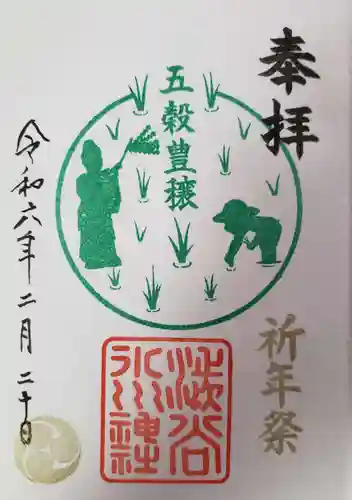 奉拝
祈年祭
五穀豊穣
澁谷
氷川神社
令和六年二月二十日